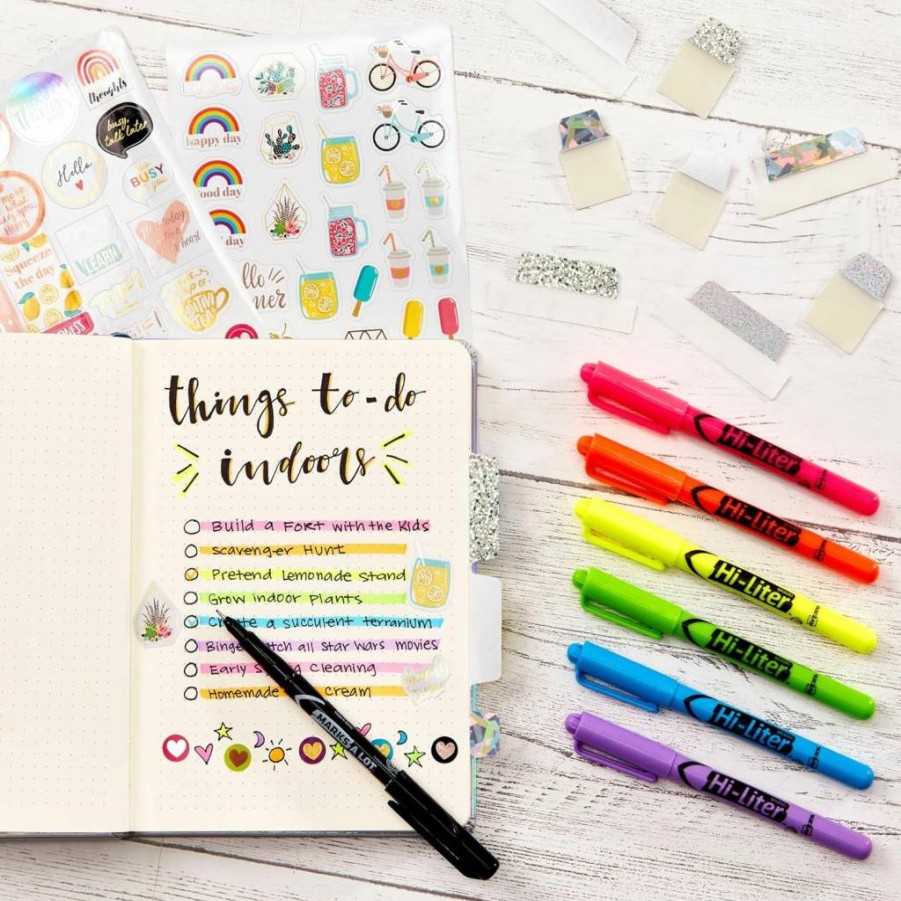 thoughts
busy,
talk later
Hello
BUSY
LEARN
Squeeze
the day
happy day
day
things to-do
indoors
Build a Fort with the Kids
Scavenger Hunt
Pretend Lemonade Stand
Grow indoor Plants
a succulent terrarium
all Star Wars movies
Early Cleaning
Homemade Cream
MARKS-A-LOT
Hi-Liter
Hi-Liter
Hi-Liter
Hi-Liter
Hi-Liter
Hi-Liter